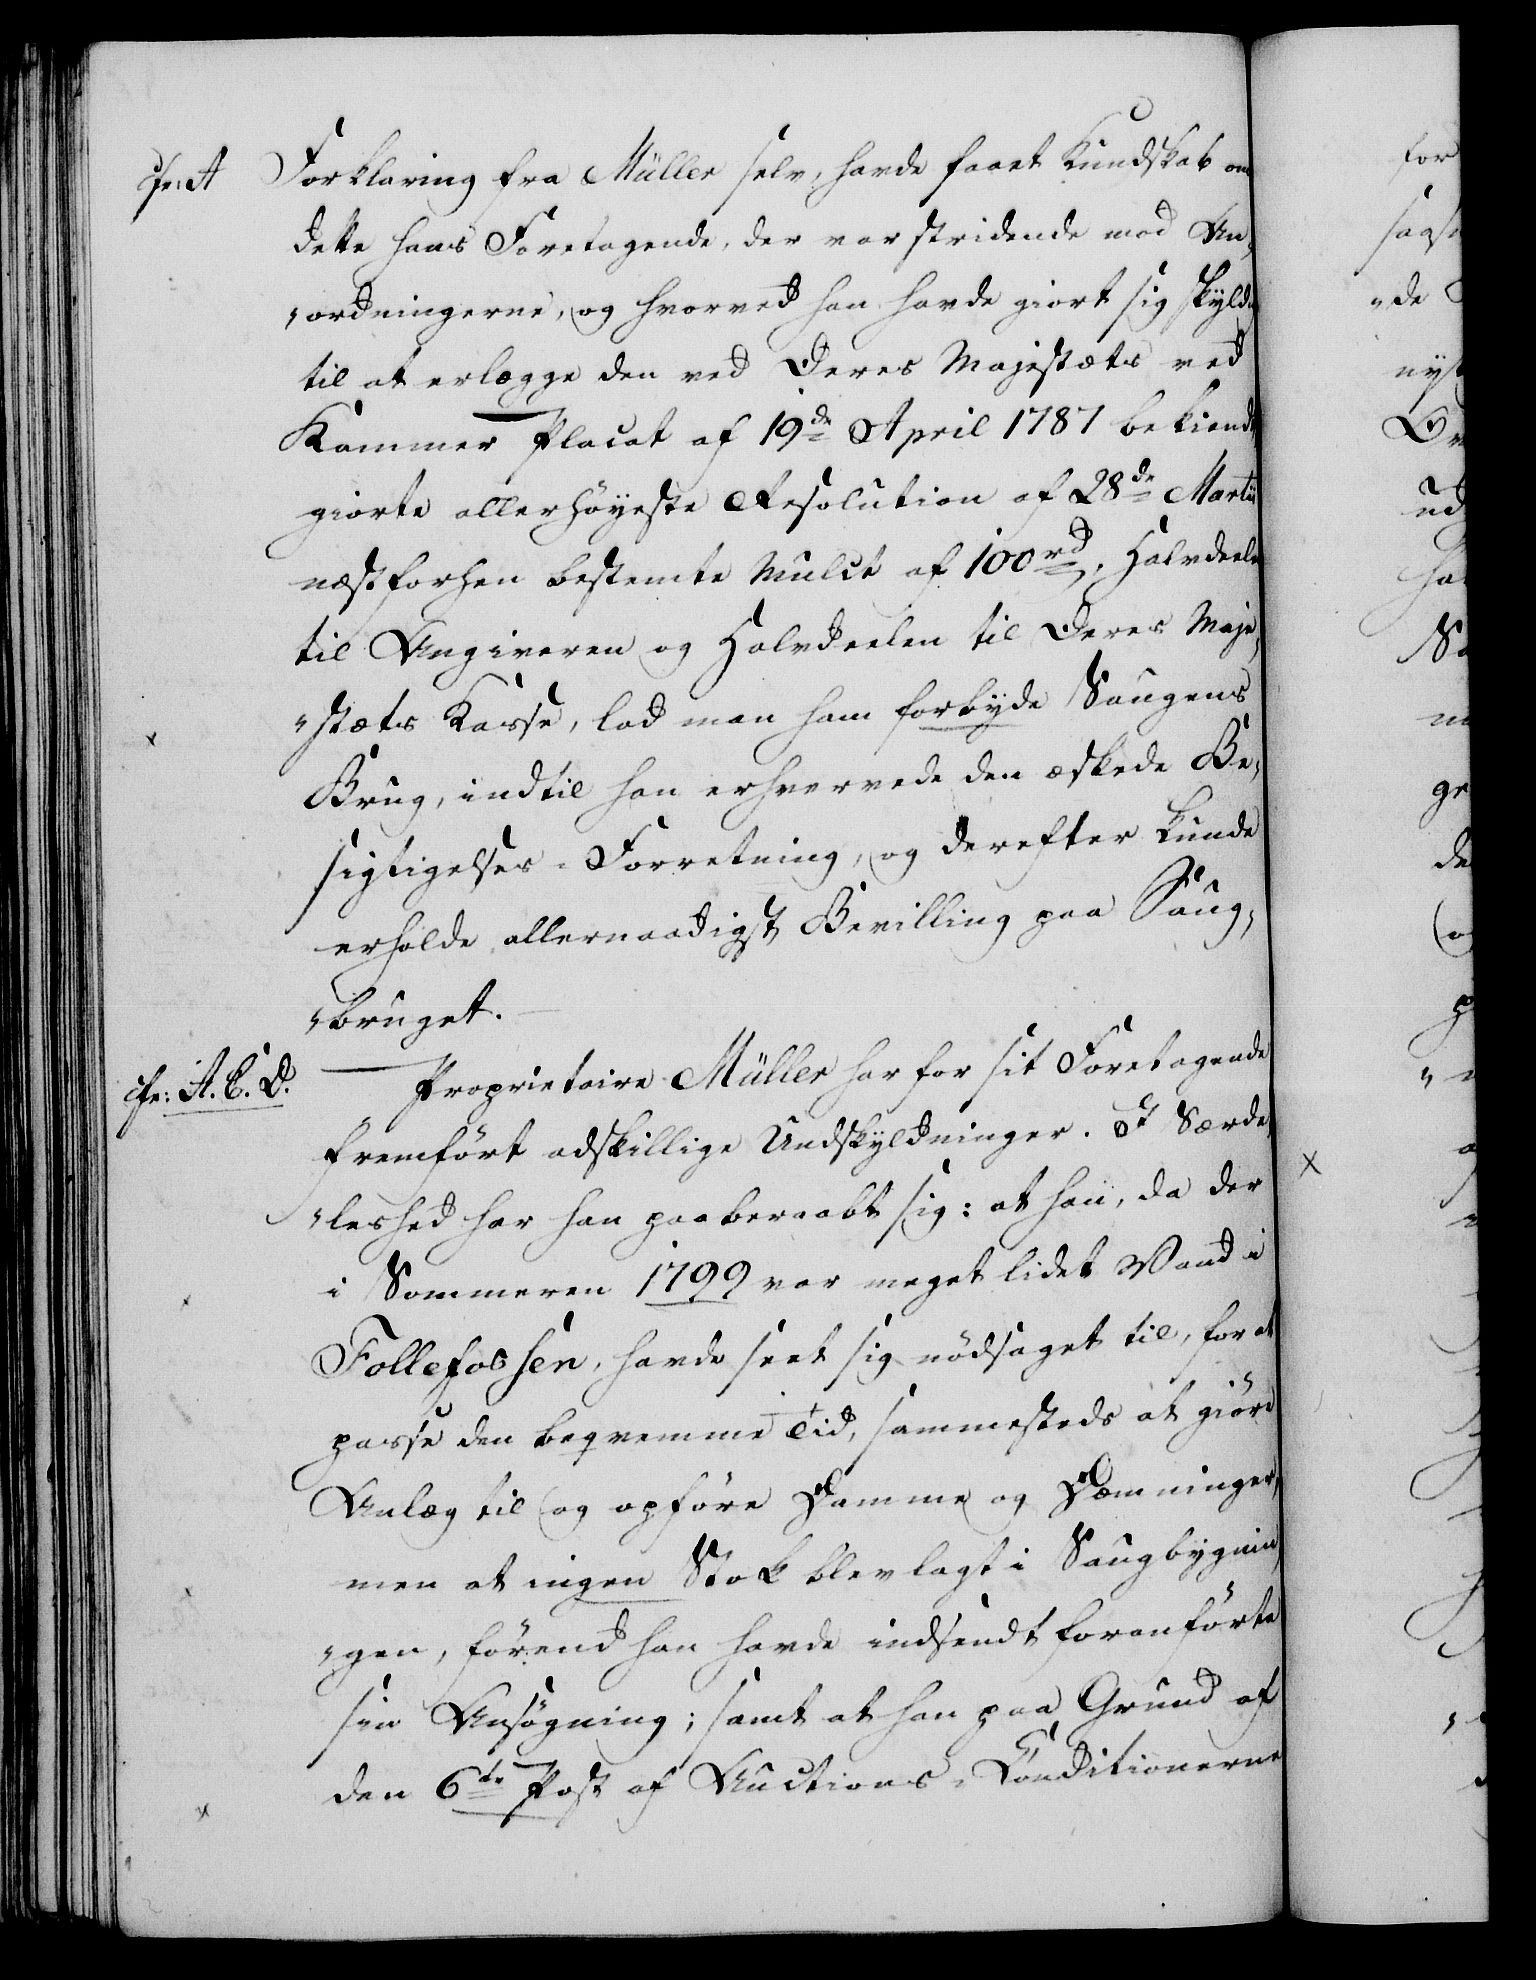 cfr: A
Forklaring fra Müller selv, havde faaet Kundskab om
dette hans Foretagende, der var stridende mod An-
„ordningerne, og hvorved han havde giort sig skyldi
til at erlægge den ved Deres Majestæts ved
Kammer Placat af 19de April 1787 bekiendt
giorte allerhöyeste Resolution af 28de Martii
næstforhen bestemte Mulct af 100 rd, Halvdeele
til Angiveren og Halvdeelen til Deres Maje-
„stæts Kasse, lod man ham forbyde Saugens
Brug, indtil han erhvervede den æskede Be-
sigtigelses-Forretning, og derefter kunde
erholde allernaadigst Bevilling paa Saug-
„bruget.
cfr: A. C. D.
Proprietaire Müller har for sit Foretagende
fremfört adskillige Undskyldninger. I Særde
„leshed har han paaberaabt sig: at han, da der
i Sommeren 1799 var meget lidet Vand i
Follefossen, havde seet sig nödsaget til, for at
passe den beqvemme Tid, sammesteds at giöre
Anlæg til og opföre Damme og Dæmninger,
men at ingen Stok blev lagt i Saugbygnin
„gen, förend han havde indsendt foranförte
sin Ansögning; samt at han paa Grund af
den 6te Post af Auctions-Conditionerne
for
„de
nyt
ud
ge
de